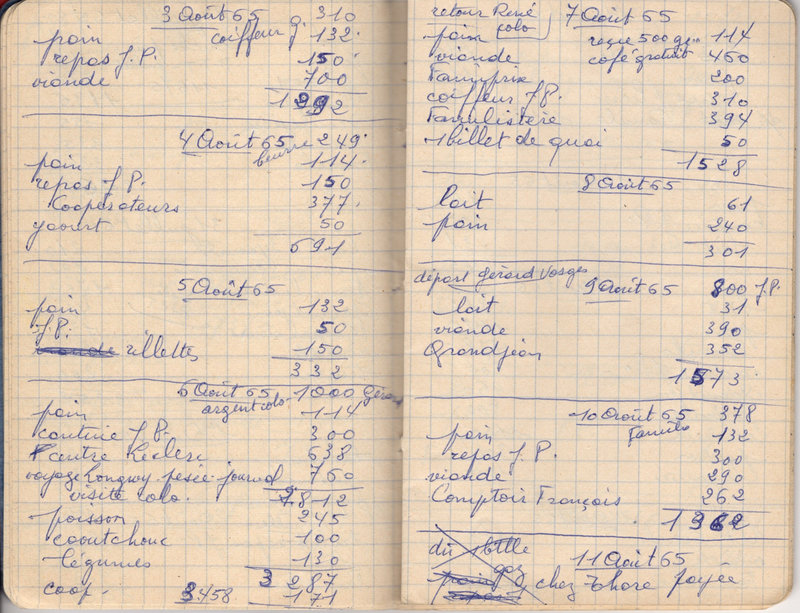 3 Août 65 310
pain coiffeur g. 132
repas J.P. 150
viande 700
1292
4 Août 65 249
pain beurre 114
repas J.P. 150
Coopérateurs 377
yaourt 50
691
5 Août 65
pain 132
J.P. 50
viande rillettes 150
332
6 Août 65 1000 Gérard
pain argent colo. 114
cantine J.P. 300
centre Leclerc 638
voyage Longwy pesée journal 760
visite colo. 2812
poisson 245
caoutchouc 100
légumes 130
3287
coop. 3458 171
retour René 7 Août 65
colo
pain reçue 500 gr 114
viande café gratuit 450
Familiprix 200
coiffeur J.P. 310
Familistère 394
1 billet de quoi 50
1528
8 Août 65
lait 61
pain 240
301
départ Gérard Vosges
9 Août 65 800 J.P.
lait 31
viande 390
Grandjean 352
1573
10 Août 65 378
pain Familis 132
repas J.P. 300
viande 290
Comptoir Français 262
1362
dû 1 btlle
gaz 11 Août 65
chez Thore payée